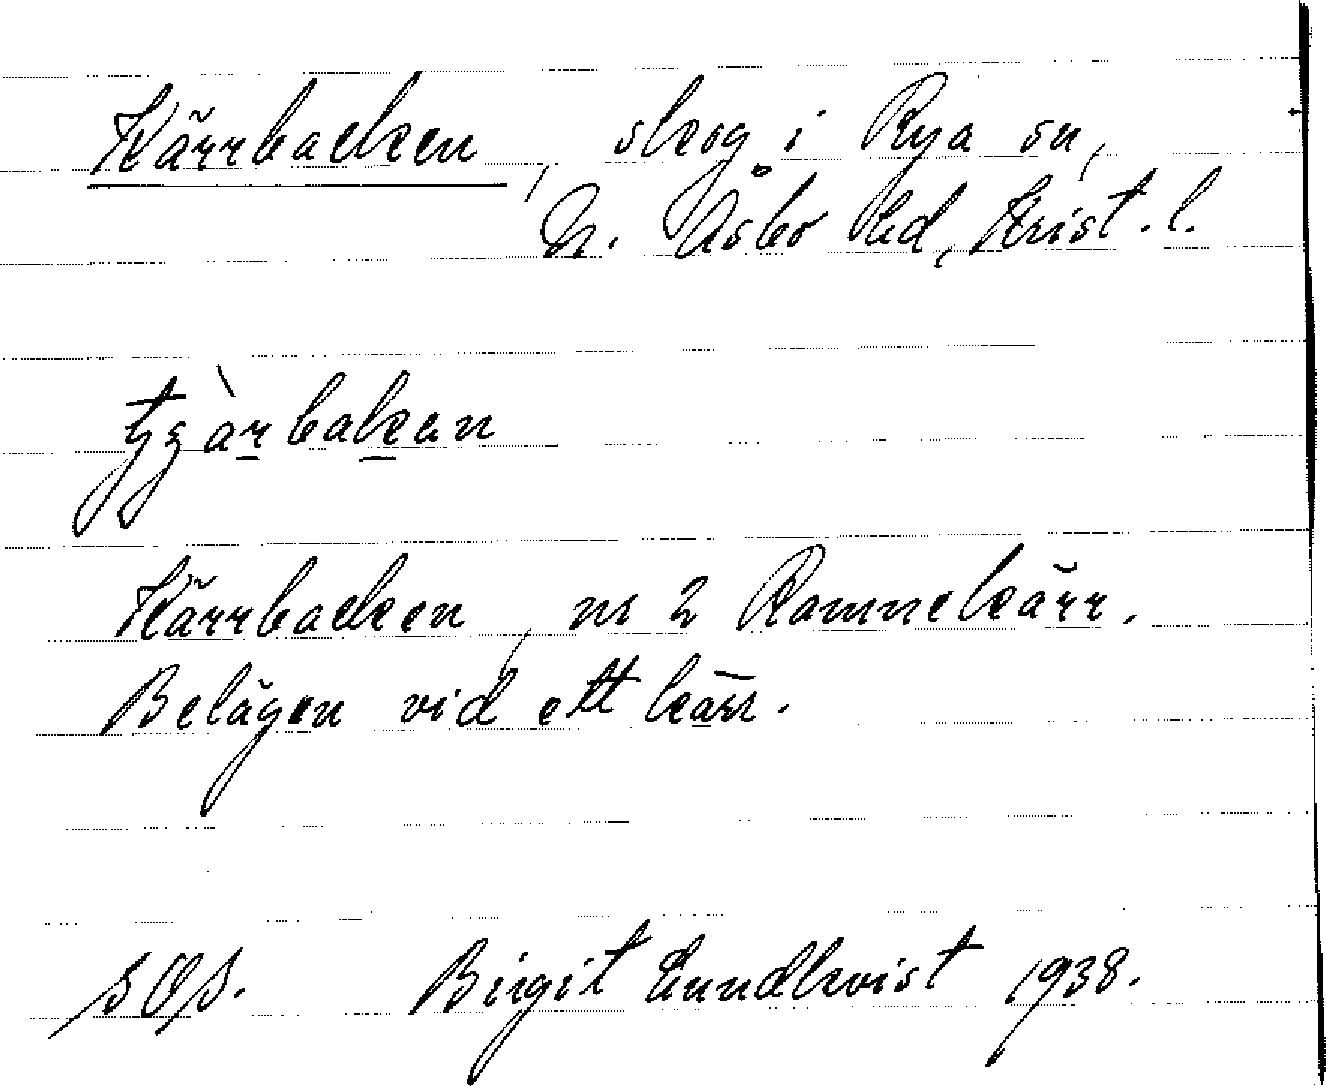 Kärrbacken, skog i Rya sn,
N. Åsbo hd, Krist. l.
tʒàrbakan
Kärrbacken, nr 2 Ramnekärr.
Belägen vid ett kärr.
SOS. Birgit Lundkvist 1938.